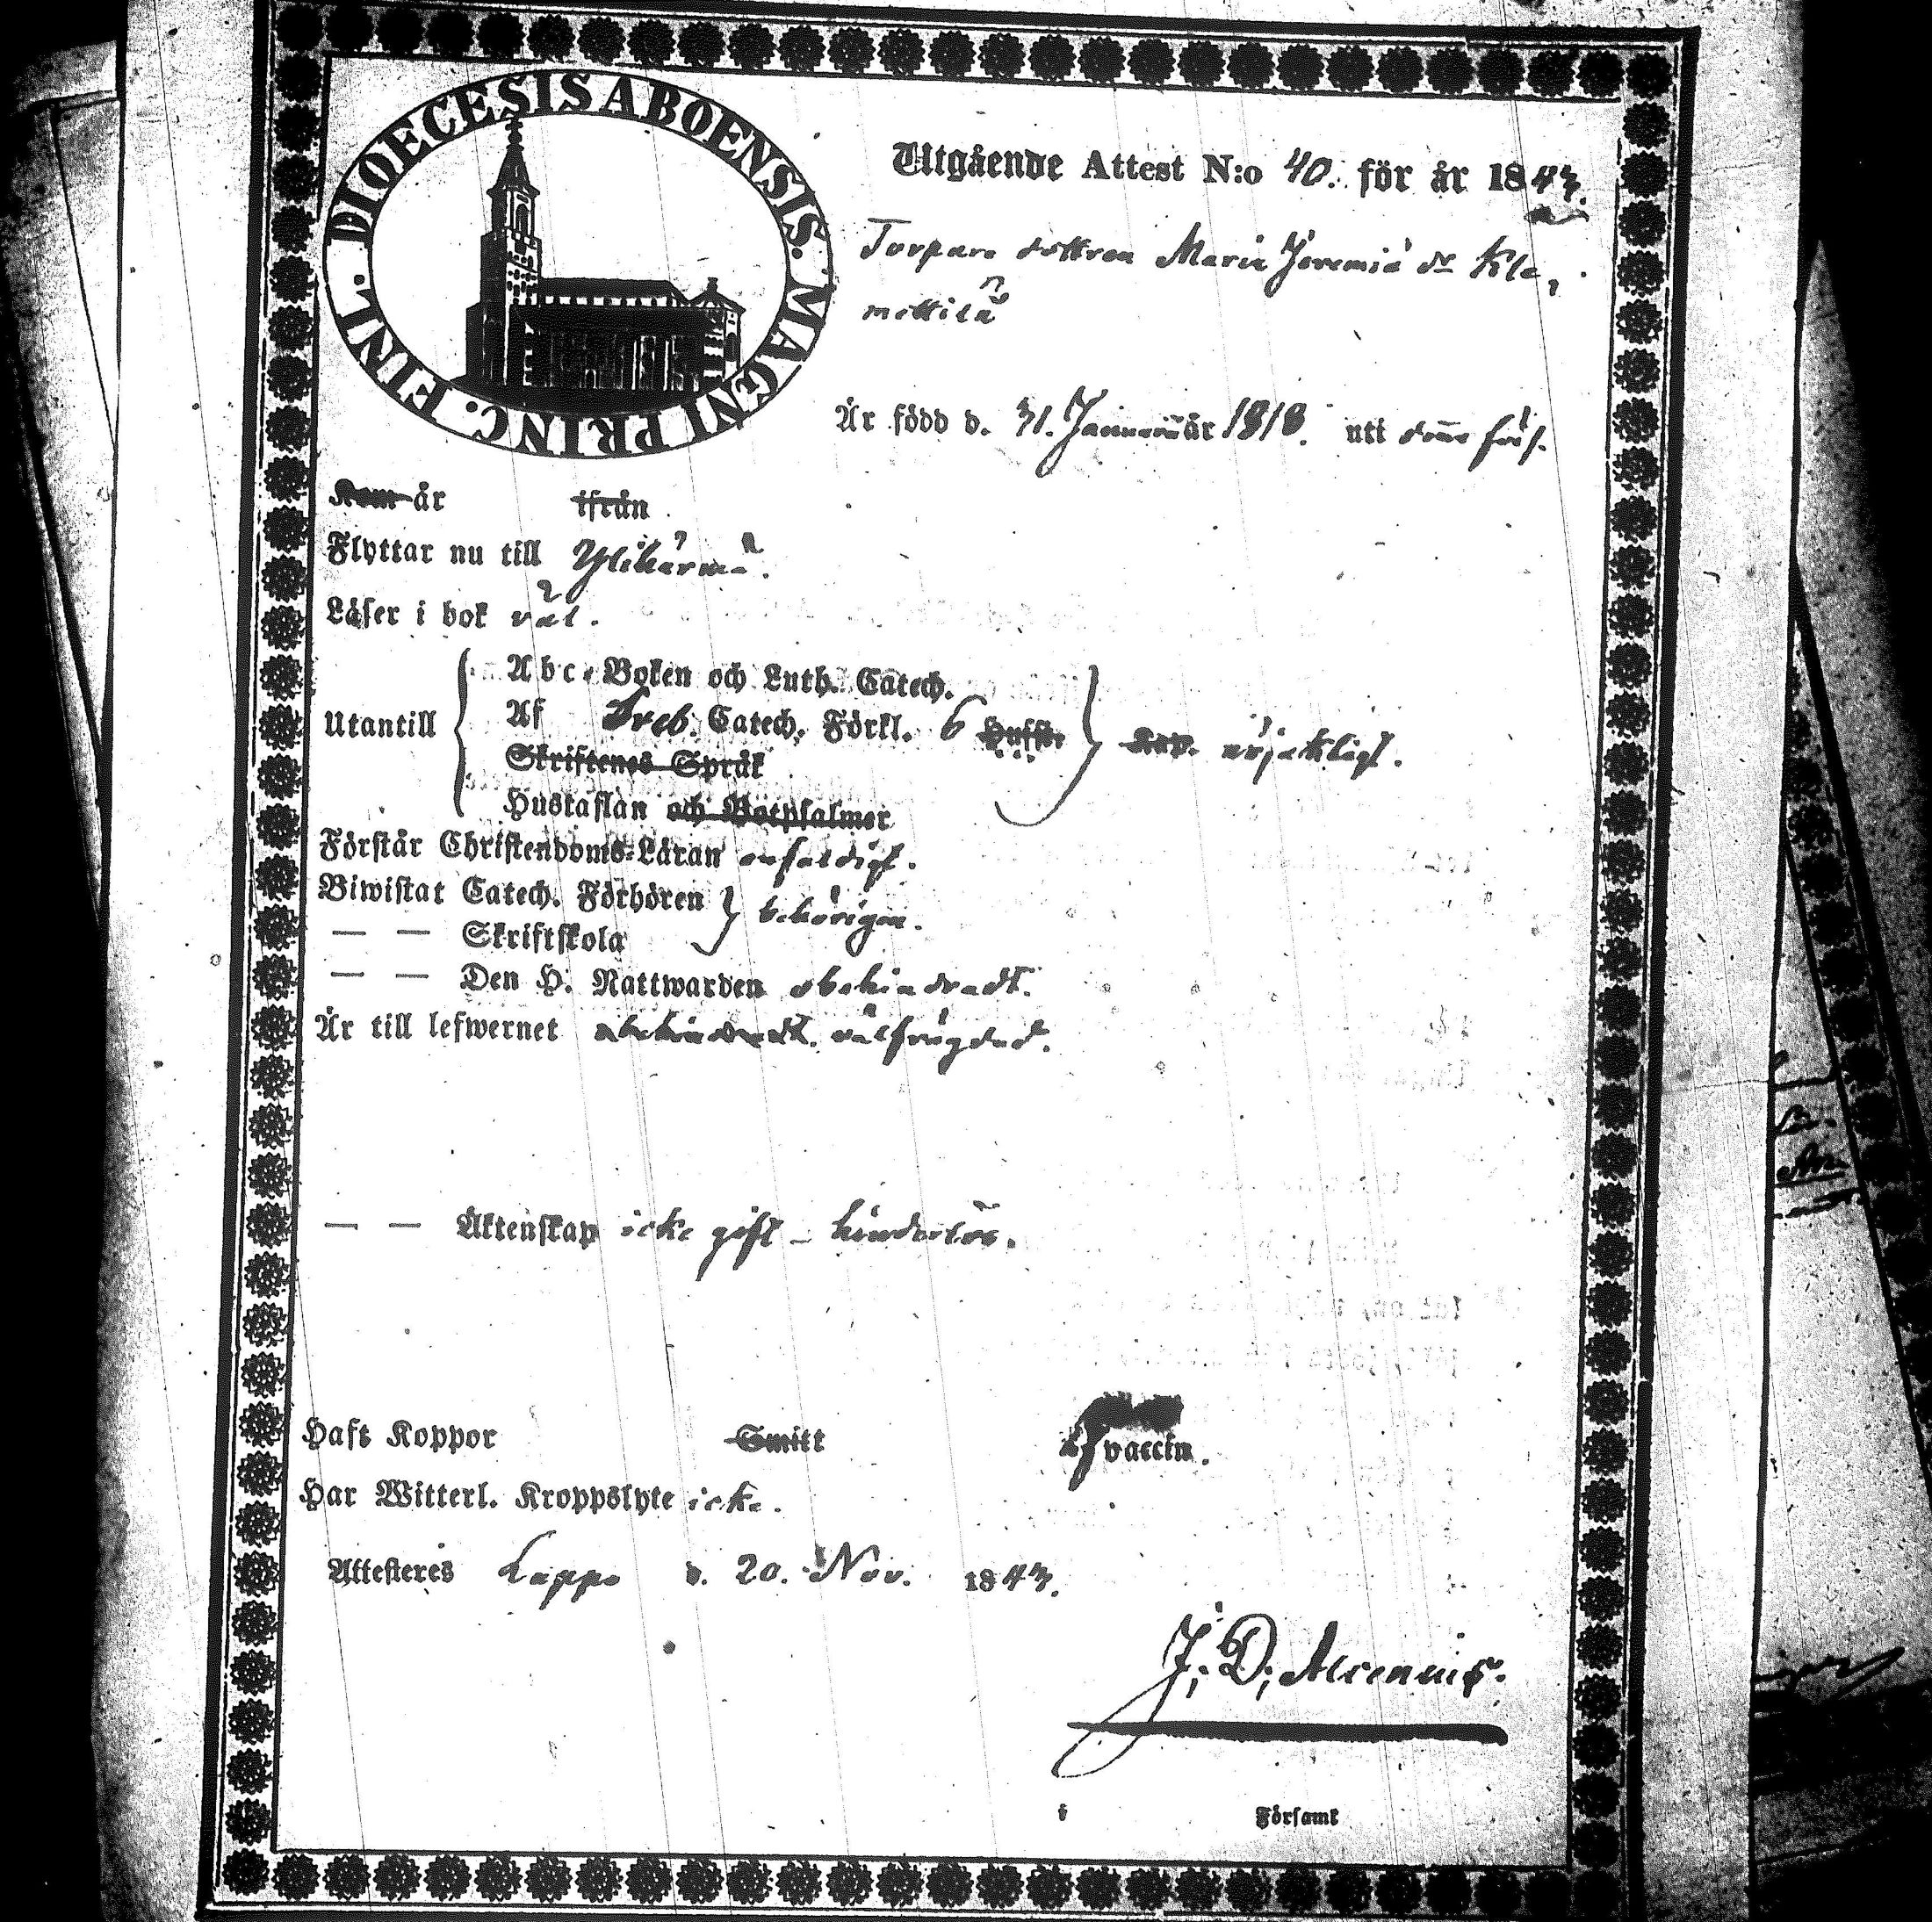 DIOECESIS ABOENSIS. MAGNI PRINC. FINL.
Utgående Attest N:o 40. för år 1843.
Torpare dottren Maria Jeremiæ dr Kle,
mettilä
Är född d. 31. Januarii år 1818. uti förs.
Kom år ifrån
Flyttar nu till Ylihärmä.
Läser i bok väl.
Utantill
Abc-Boken och Luth. Catech.
Af Sveb. Catech. Förkl. 6 Hufst.
Skriftenes Språk
Hustaflan och Botpsalmer
nöjaktligt.
Förstår Christendoms-Läran enfaldigt.
Biwistat Catech. Förhören
— — Skriftskola
behörigen.
— — Den H. Nattwarden obehindradt.
Är till lefwernet obehindradt. välfrägdad.
— — Äktenskap icke gift – hinderlös.
Haft Koppor Smitt vaccin.
Har Witterl. Kroppslyte icke.
Attesteres Lappo d. 20. Nov. 1843.
J. D. Alcenius.
i Församl